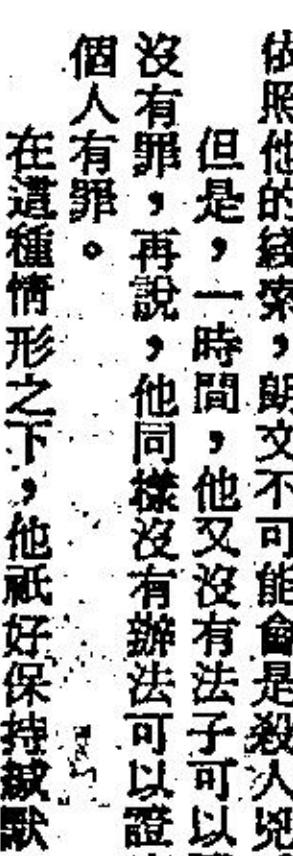 依照他的綫索，朗文不可能會是殺人兇
但是，一時間，他又沒有法子可以
沒有罪，再說，他同樣沒有辦法可以證
個人有罪。
在這種情形之下，他祇好保持緘默